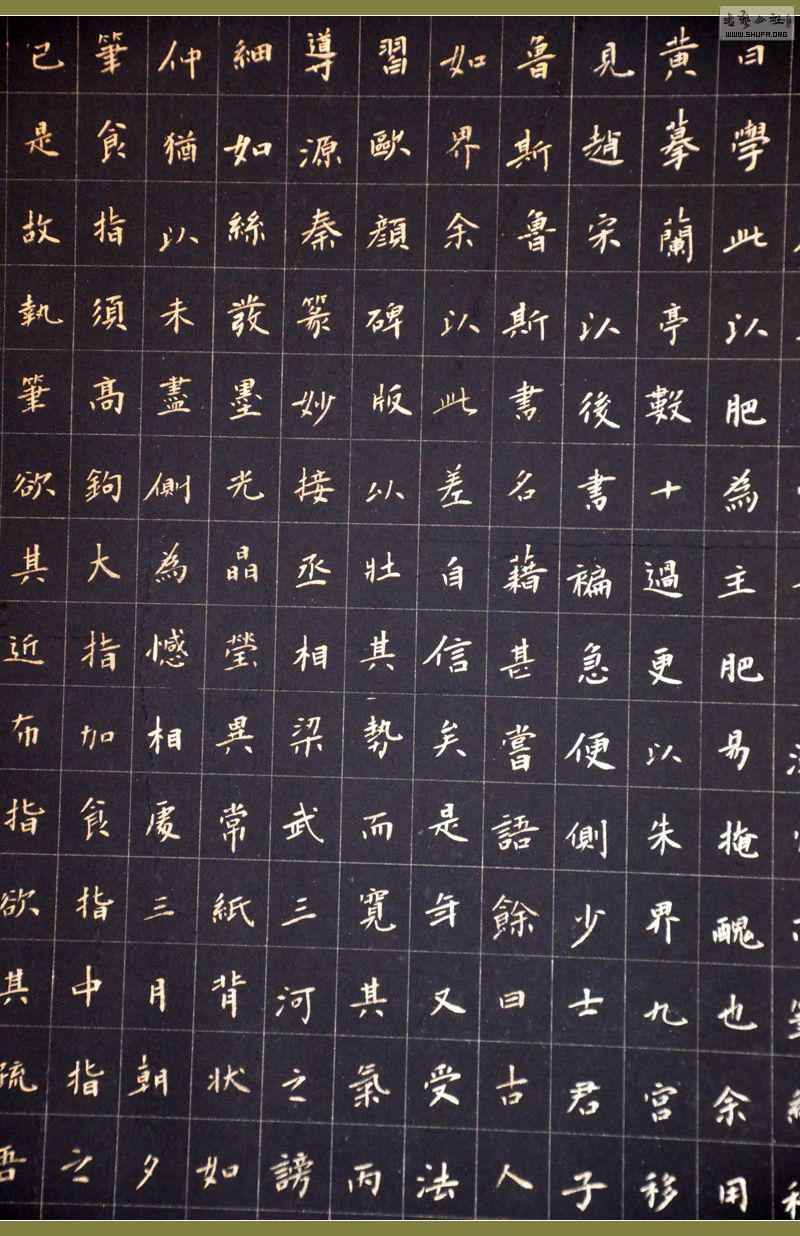 曰學此以肥為主肥易掩醜也余用
黄摹蘭亭數十過更以朱界九宮移
見趙宋以後書褊急便側少士君子
魯斯魯斯書名藉甚嘗語餘曰古人
如界余以此差自信矣是年又受法
習歐顏碑版以壯其勢而寬其氣丙
導源秦篆妙接丞相梁武三河之謗
細如絲發墨光晶瑩異常紙背狀如
仲猶以未盡側為憾相處三月朝夕
筆食指須高鉤大指加食指中指之
已是故執筆欲其近布指欲其疏吾
書法公社
WWW.SHUFA.ORG